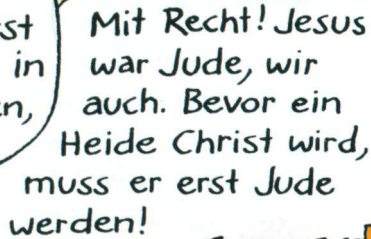 st
in
n,
Mit Recht! Jesus
war Jude, wir
auch. Bevor ein
Heide Christ wird,
muss er erst Jude
werden!